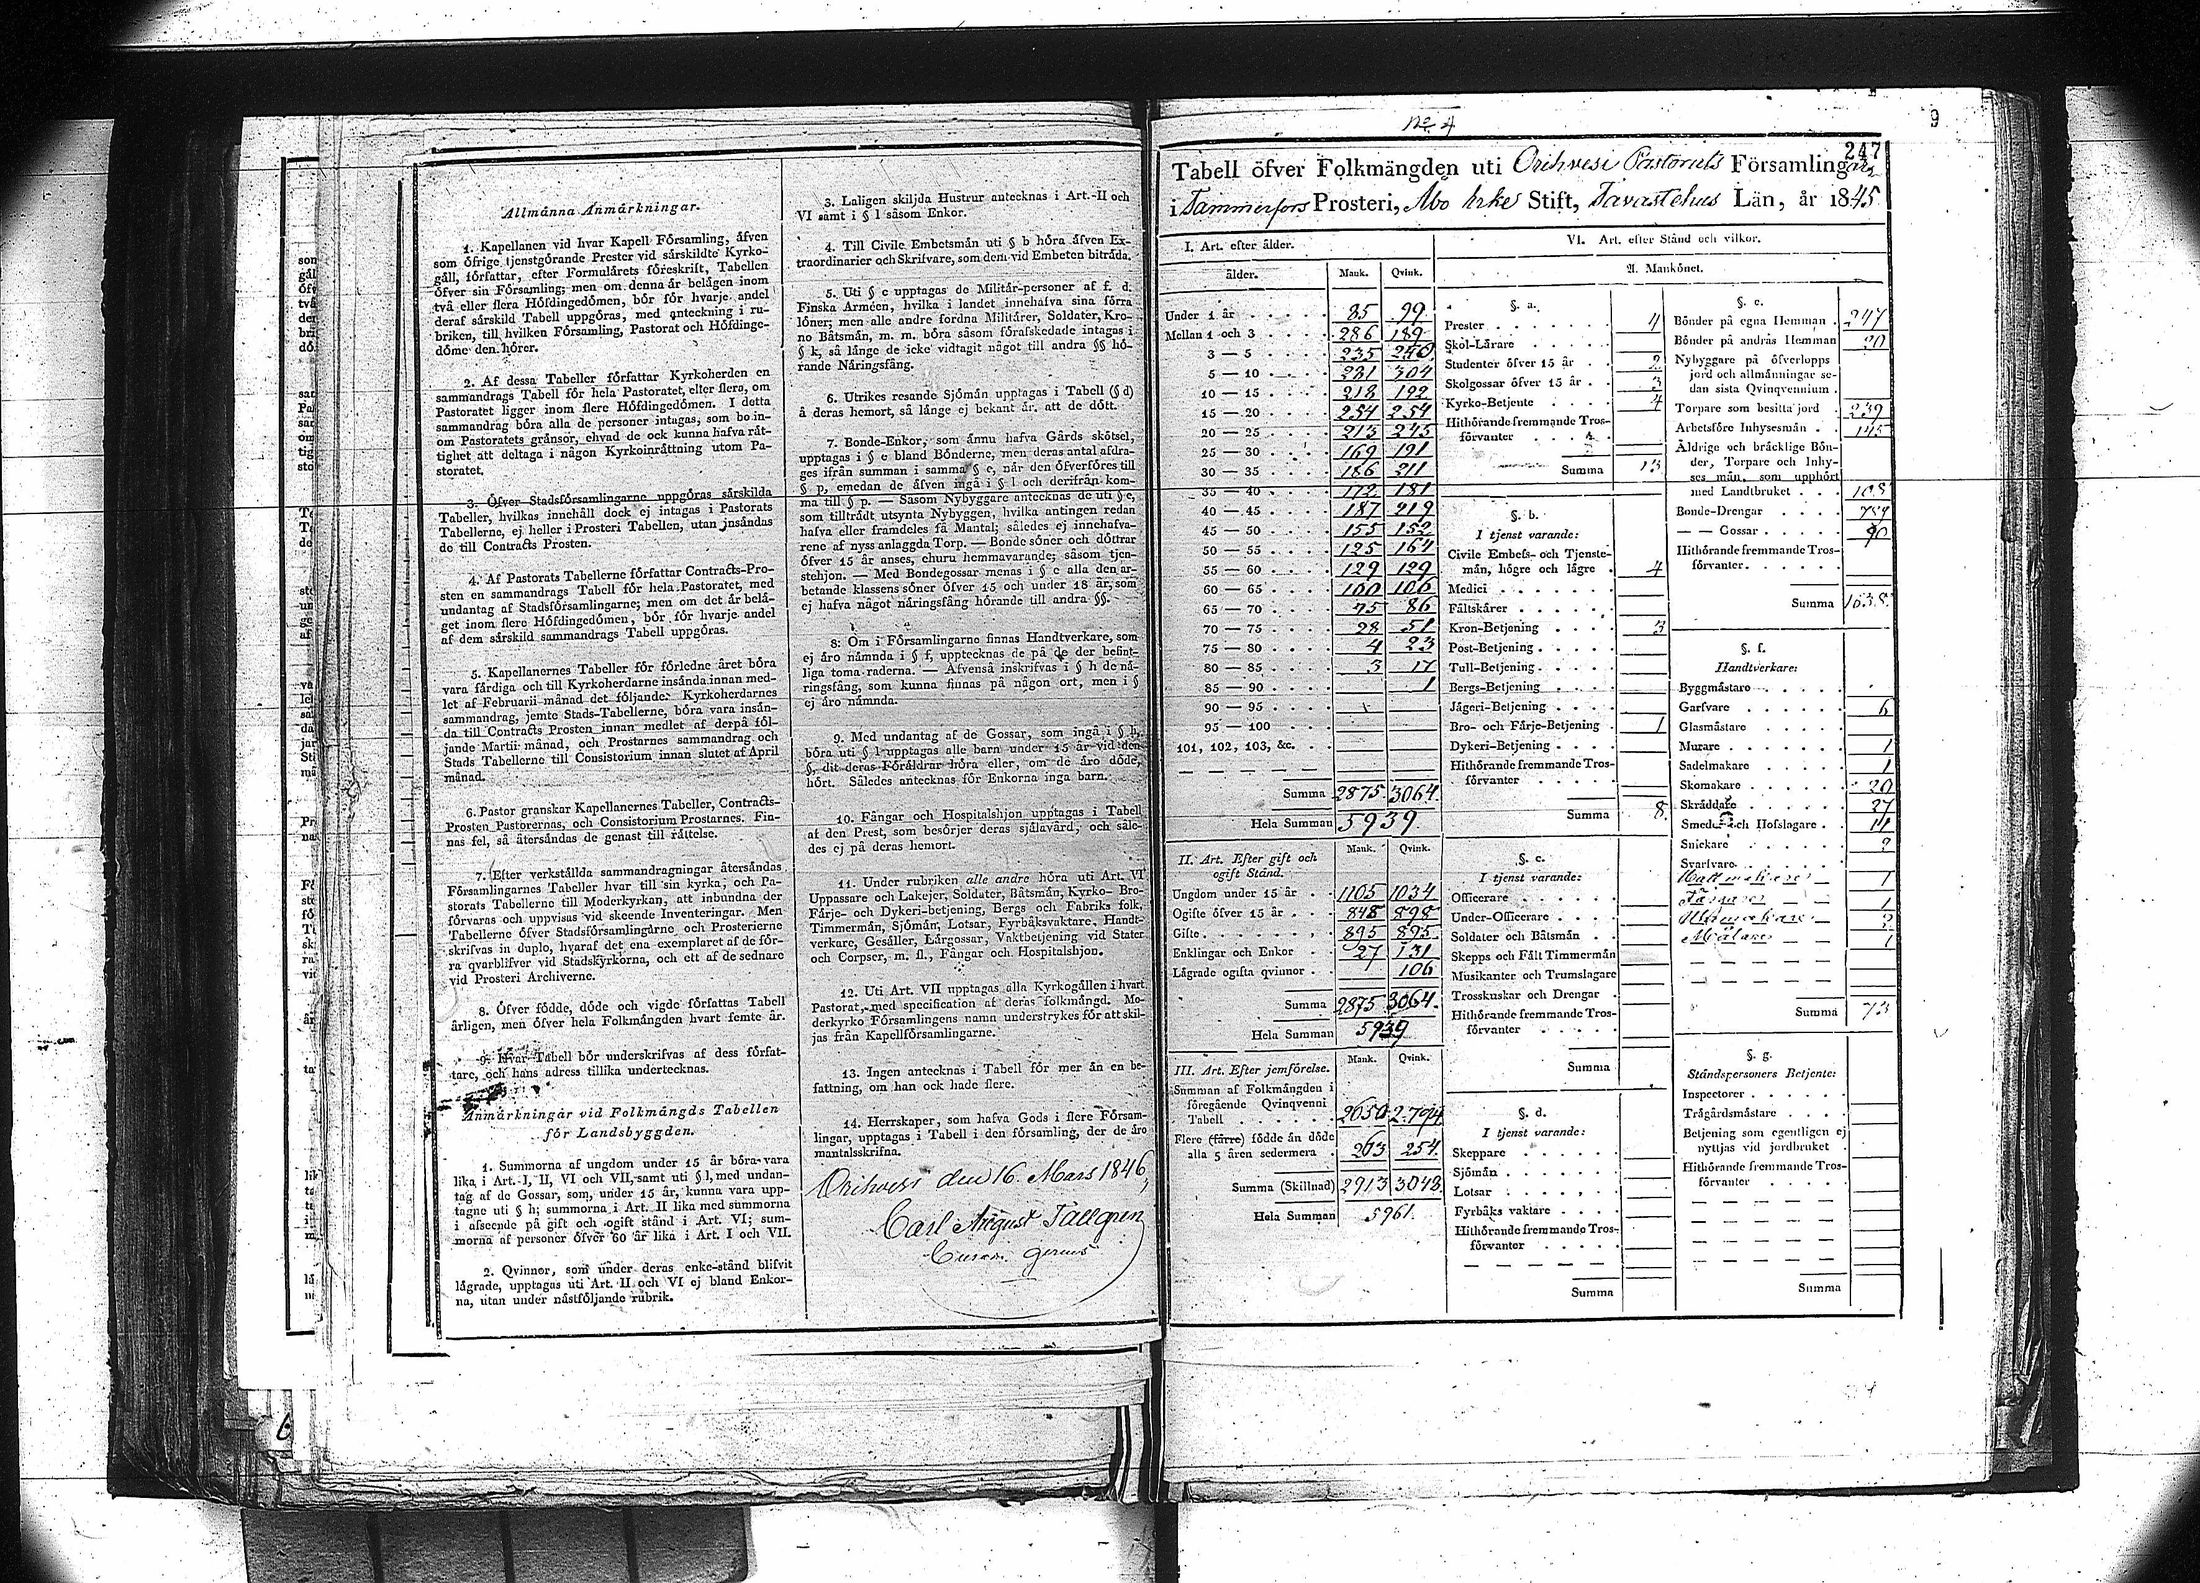 Allmänna Anmärkningar.
1. Kapellanen vid hvar Kapell Församling, äfven
som öfrige tjenstgörande Prester vid särskildte Kyrko-
gäll, författar, efter Formulärets föreskrift, Tabellen
öfver sin Församling; men om denna är belägen inom
två eller flera Höfdingedömen, bör för hvarje andel
deraf särskild Tabell uppgöras, med anteckning i ru-
briken, till hvilken Församling, Pastorat och Höfdinge-
döme den hörer.
2. Af dessa Tabeller författar Kyrkoherden en
sammandrags Tabell för hela Pastoratet, eller flera, om
Pastoratet ligger inom flere Höfdingedömen. I detta
sammandrag böra alla de personer intagas, som bo in-
om Pastoratets gränsor, ehvad de ock kunna hafva rät-
tighet att deltaga i någon Kyrkoinrättning utom Pa-
storatet.
3. Öfver Stadsförsamlingarne uppgöras särskilda
Tabeller, hvilkas innehåll dock ej intagas i Pastorats
Tabellerne, ej heller i Prosteri Tabellen, utan insändas
de till Contracts Prosten.
4. Af Pastorats Tabellerne författar Contracts-Pro-
sten en sammandrags Tabell för hela Pastoratet, med
undantag af Stadsförsamlingarne; men om det är belä-
get inom flere Höfdingedömen, bör för hvarje andel
af dem särskild sammandrags Tabell uppgöras.
5. Kapellanernes Tabeller för förledne året böra
vara färdiga och till Kyrkoherdarne insända innan med-
let af Februarii månad det följande: Kyrkoherdarnes
sammandrag, jemte Stads-Tabellerne, böra vara insän-
da till Contracts Prosten innan medlet af derpå föl-
jande Martii månad, och Prostarnes sammandrag och
Stads Tabellerne till Consistorium innan slutet af April
månad.
6. Pastor granskar Kapellanernes Tabeller, Contracts-
Prosten Pastorernas, och Consistorium Prostarnes. Fin-
nas fel, så återsändas de genast till rättelse.
7. Efter verkställda sammandragningar återsändas
Församlingarnes Tabeller hvar till sin kyrka, och Pa-
storats Tabellerne till Moderkyrkan, att inbundna der
förvaras och uppvisas vid skeende Inventeringar. Men
Tabellerne öfver Stadsförsamlingarne och Prosterierne
skrifvas in duplo, hvaraf det ena exemplaret af de för-
ra qvarblifver vid Stadskyrkorna, och ett af de sednare
vid Prosteri Archiverne.
8. Öfver födde, döde och vigde författas Tabell
årligen, men öfver hela Folkmängden hvart femte år.
9. Hvar Tabell bör underskrifvas af dess förfat-
tare, och hans adress tillika undertecknas.
Anmärkningar vid Folkmängds Tabellen
för Landsbyggden.
1. Summorna af ungdom under 15 år böra vara
lika i Art. I, II, VI och VII, samt uti § l, med undan-
tag af de Gossar, som, under 15 år, kunna vara upp-
tagne uti § h; summorna i Art. II lika med summorna
i afseende på gift och ogift stånd i Art. VI; sum-
morna af personer öfver 60 år lika i Art. I och VII.
2. Qvinnor, som under deras enke-stånd blifvit
lägrade, upptagas uti Art. II och VI ej bland Enkor-
na, utan under nästföljande rubrik.
3. Laligen skiljda Hustrur antecknas i Art. II och
VI samt i § l såsom Enkor.
4. Till Civile Embetsmän uti § b höra äfven Ex-
traordinarier och Skrifvare, som dem vid Embeten biträda.
5. Uti § c upptagas de Militär-personer af f. d.
Finska Arméen, hvilka i landet innehafva sina förra
löner; men alle andre fordna Militärer, Soldater, Kro-
no Båtsmän, m. m. böra såsom förafskedade intagas i
§ k, så länge de icke vidtagit något till andra §§ hö-
rande Näringsfång.
6. Utrikes resande Sjömän upptagas i Tabell (§ d)
å deras hemort, så länge ej bekant är, att de dött.
7. Bonde-Enkor, som ännu hafva Gårds skötsel,
upptagas i § e bland Bönderne, men deras antal afdra-
ges ifrån summan i samma § e, när den öfverföres till
§ p, emedan de äfven ingå i § l och derifrån kom-
ma till § p. — Såsom Nybyggare antecknas de uti § e,
som tillträdt utsynta Nybyggen, hvilka antingen redan
hafva eller framdeles få Mantal; således ej innehafva-
rene af nyss anlaggda Torp. — Bonde söner och döttrar
öfver 15 år anses, ehuru hemmavarande, såsom tjen-
stehjon. — Med Bondegossar menas i § e alla den ar-
betande klassens söner öfver 15 och under 18 år, som
ej hafva något näringsfång hörande till andra §§.
8. Om i Församlingarne finnas Handtverkare, som
ej äro nämnda i § f, upptecknas de på de der befint-
liga toma raderna. — Äfvenså inskrifvas i § h de nä-
ringsfång, som kunna finnas på någon ort, men i §
ej äro nämnda.
9. Med undantag af de Gossar, som ingå i § h,
böra uti § l upptagas alle barn under 15 år vid den
§, dit deras Föräldrar höra eller, om de äro döde,
hört. Således antecknas för Enkorna inga barn.
10. Fångar och Hospitalshjon upptagas i Tabell
af den Prest, som besörjer deras själavård, och såle-
des ej på deras hemort.
11. Under rubriken alle andre höra uti Art. VI
Uppassare och Lakejer, Soldater, Båtsmän, Kyrko- Bro-
Färje- och Dykeri-betjening, Bergs och Fabriks folk,
Timmermän, Sjömän, Lotsar, Fyrbåksvaktare, Handt-
verkare, Gesäller, Lärgossar, Vaktbetjening vid Stater
och Corpser, m. fl., Fångar och Hospitalshjon.
12. Uti Art. VII upptagas alla Kyrkogällen i hvart
Pastorat, med specification af deras folkmängd. Mo-
derkyrko Församlingens namn understrykes för att skil-
jas från Kapellförsamlingarne.
13. Ingen antecknas i Tabell för mer än en be-
fattning, om han ock hade flere.
14. Herrskaper, som hafva Gods i flere Försam-
lingar, upptagas i Tabell i den församling, der de äro
mantalsskrifna.
Orihvesi den 16 Mars 1846,
Carl August Tallgren
No 4
9
247
Tabell öfver Folkmängden uti Orihvesi Pastorats Församlingar
i Tammerfors Prosteri, Åbo Erke Stift, Tavastehus Län, år 1845
I. Art. efter ålder.
ålder. Mank. Qvink.
Under 1 år 85 99
Mellan 1 och 3 286 189
3 — 5 235 250
5 — 10 281 304
10 — 15 218 192
15 — 20 254 254
20 — 25 213 245
25 — 30 169 191
30 — 35 186 211
35 — 40 172 181
40 — 45 187 219
45 — 50 155 152
50 — 55 125 164
55 — 60 129 129
60 — 65 100 106
65 — 70 75 86
70 — 75 28 51
75 — 80 4 23
80 — 85 3 17
85 — 90 1
90 — 95
95 — 100
101, 102, 103, &c.
Summa 2875 3064
Hela Summan 5939
Mank. Qvink.
II. Art. Efter gift och
ogift Stånd.
Ungdom under 15 år 1105 1034
Ogifte öfver 15 år 848 898
Gifte 895 895
Enklingar och Enkor 27 131
Lägrade ogifta qvinnor 106
Summa 2875 3064
Hela Summan 5939
Mank. Qvink.
III. Art. Efter jemförelse.
Summan af Folkmängden i
föregående Qvinqvenni
Tabell 2650 2.794
Flere (färre) födde än döde
alla 5 åren sedermera 263 254
Summa (Skillnad) 2913 3048
Hela Summan 5961
VI. Art. efter Stånd och vilkor.
A. Mankönet.
§. a.
Prester 4
Skol-Lärare
Studenter öfver 15 år 2
Skolgossar öfver 15 år 3
Kyrko-Betjente 4
Hithörande fremmande Tros-
förvanter
Summa 13
§. b.
I tjenst varande:
Civile Embets- och Tjenste-
män, högre och lägre 4
Medici
Fältskärer
Kron-Betjening 3
Post-Betjening
Tull-Betjening
Bergs-Betjening
Jägeri-Betjening
Bro- och Färje-Betjening 1
Dykeri-Betjening
Hithörande fremmande Tros-
förvanter
Summa 8
§. c.
I tjenst varande:
Officerare
Under-Officerare
Soldater och Båtsmän
Skepps och Fält Timmermän
Musikanter och Trumslagare
Trosskuskar och Drengar
Hithörande fremmande Tros-
förvanter
Summa
§. d.
I tjenst varande:
Skeppare
Sjömän
Lotsar
Fyrbåks vaktare
Hithörande fremmande Tros-
förvanter
Summa
§. e.
Bönder på egna Hemman 247
Bönder på andras Hemman 20
Nybyggare på öfverlopps
jord och allmänningar se-
dan sista Qvinqvennium
Torpare som besitta jord 239
Arbetsföre Inhysesmän 145
Äldrige och bräcklige Bön-
der, Torpare och Inhy-
ses män, som upphört
med Landtbruket
Bonde-Drengar
— — Gossar 90
Hithörande fremmande Tros-
förvanter
Summa 1638
§. f.
Handtverkare:
Byggmästare
Garfvare 6
Glasmästare
Murare 1
Sadelmakare 1
Skomakare 20
Skräddare 27
Smeder och Hofslagare 11
Snickare 2
Svarfvare
Hattmakare 1
Färgare 1
Urmakare 2
Målare 1
Summa 73
§. g.
Ståndspersoners Betjente:
Inspectorer
Trägårdsmästare
Betjening som egentligen ej
nyttjas vid jordbruket
Hithörande fremmande Tros-
förvanter
Summa